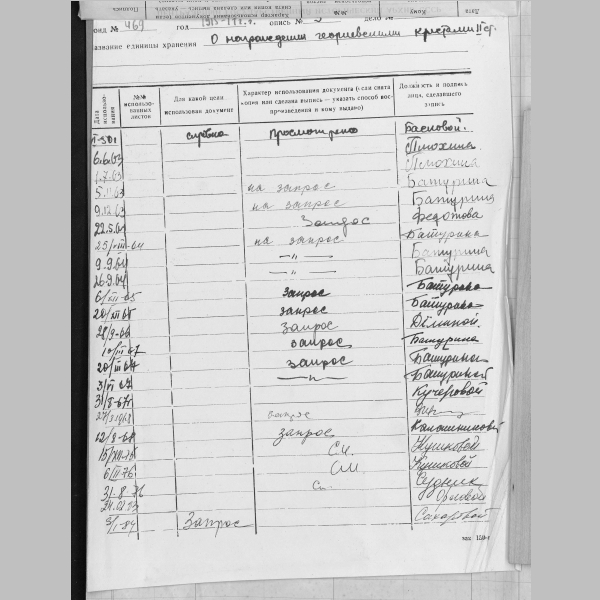 фонд № 469 год опись № дело №
Название единицы хранения О награждении георгиевскими крестами II ст.
Дата использования
№№ использованных листов
Для какой цели использован документ
Характер использования документа (если снята копия или сделана выпись — указать способ воспроизведения и кому выдано)
Должность и подпись лица, сделавшего запись
служебно просмотрено Басловой.
6.6.63 Плюхина
1.7.63 Плюхина
5.11.63 на запрос Батурина
9.12.63 на запрос Батурина
22.5.64 Запрос Федотова
25/VIII-64 на запрос Батурина
9.9.64 —"— Батурина
26.9.64 —"— Батурина
6/VII-65 Запрос Батурина
20/XII 65 запрос Батурина
28/9-66 Запрос Дёминой.
запрос Батурина
20/III 67 запрос Батурина
3/VI 67 —"— Батуриной
31/8-67 Кучеровой
запрос
12/8-68 запрос Калашниковой
15/XII-75 С.И. Кушковой
6/II-76 Кушковой
31.8.76 Судник
24.02.83 Орловой
3/1-84 Запрос Сахаровой